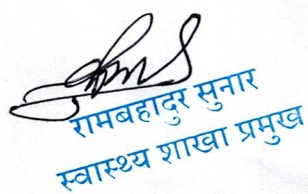 रामबहादुर सुनार
स्वास्थ्य शाखा प्रमुख